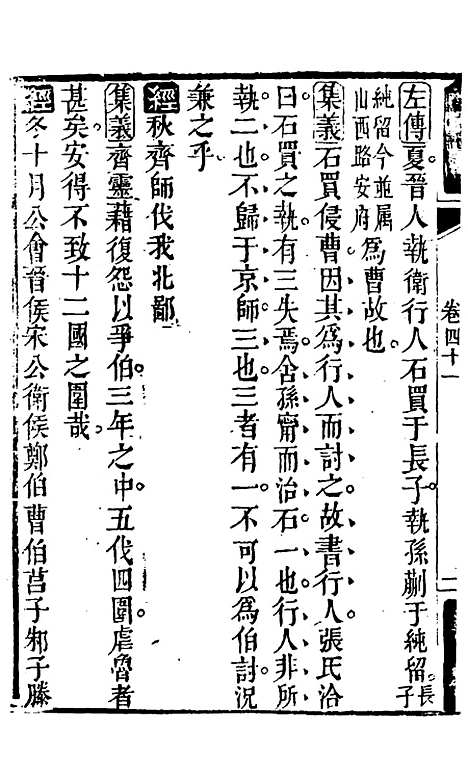 左傳夏晉人執衛行人石買于長子執孫蒯于純留長子
純留今並属
山西路安府為曹故也
集義石買侵曹因其爲行人而討之故書行人張氏洽
曰石買之執有三失焉舍孫甯而治石一也行人非所
執二也不歸于京師三也三者有一不可以爲伯討況
兼之乎
經秋齊師伐我北鄙
集義齊靈藉復怨以爭伯三年之中五伐四圍虐魯者
甚矣安得不致十二國之圍哉
經冬十月公會晉侯宋公衛侯鄭伯曹伯莒子邾子滕
卷四十一
二